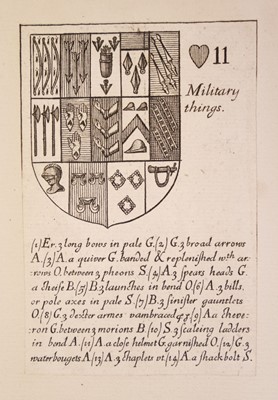 ♥ 11
Military
things.
(1) Er. 3 long bows in pale G. (2) G. 3 broad arrows
A. (3) A. a quiver G. banded & replenished wth. ar:
:rows O. between 3 pheons S. (4) A. 3 spears heads G.
a cheife B. (5) B. 3 launches in bend O. (6) A. 3 bills,
or pole axes in pale S. (7) B. 3 sinister gauntlets
O. (8) G. 3 dexter armes vambraced (9) A. a cheve:
:ron G. between 3 morions B. (10) S. 3 scaleing ladders
in bend A. (11) A. a close helmet G. garnished O. (12) G. 3
water bougets A. (13) A. 3 chaplets vt. (14) A. a shack bolt S.